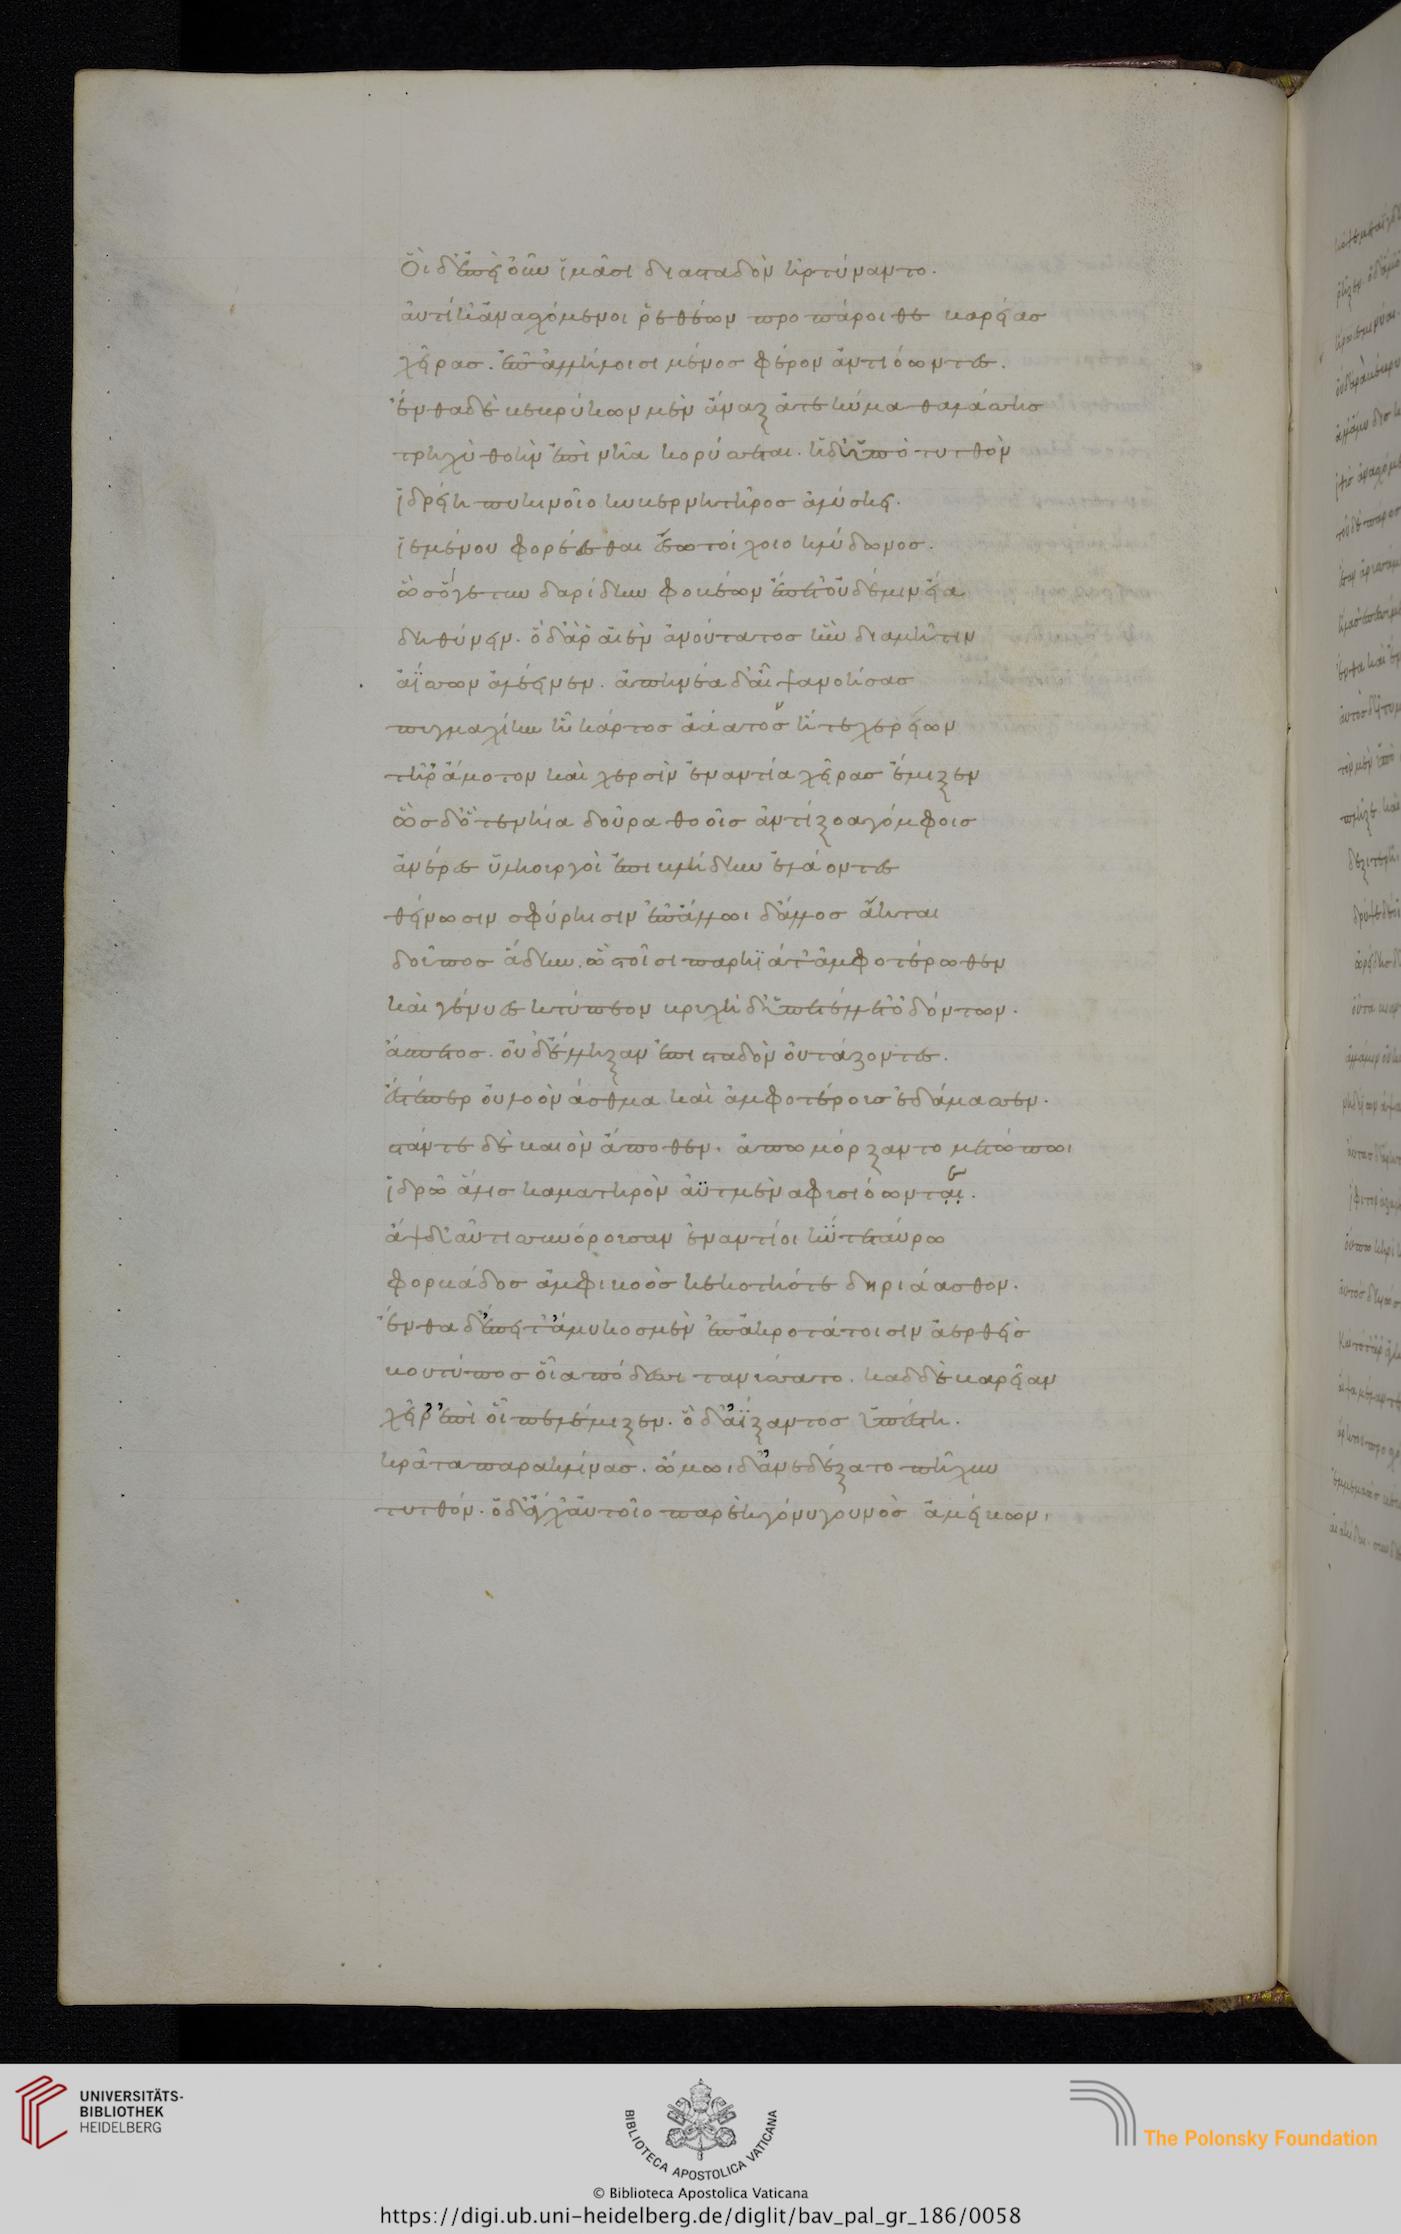 Οἱ δ' ἐπεὶ οὖν ἱμᾶσι διασταδὸν ἠρτύναντο.
αὐτίκ' ἀνασχόμενοι ῥεθέων προπάροιθε βαρείας
χεῖρας. ἐπ' ἀλλήλοισι μένος φέρον ἀντιόωντες.
ἔνθα δὲ βεβρύκων μὲν ἄναξ ἅτε κύμα θαλάσσης
τρηχὺ θοὴν ἐπὶ νῆα κορύσσεται. ἡ δ' ὑπὸ τυτθὸν
ἰδρείη πυκινοῖο κυβερνητῆρος ἀλύσκει.
ἱεμένου φορέεσθαι ἔσω τοίχοιο κλύδωνος.
ὣς ὅγε τυνδαρίδην φοβέων ἕπετ' οὐδέ μιν εἴα
δηθύνειν. ὁ δ' ἄρ' αἰὲν ἀνούτατος ἣν δια μῆτιν
ἀΐσσων ἀλέεινεν. ἀπηνέα δ' αἶψα νοήσας
πυγμαχίην ἧ κάρτος ἀάατος ἥ τε χερείων
στῆ ῥ' ἄμοτον καὶ χερσὶν ἐναντία χεῖρας ἔμιξεν
ὡς δ' ὅτε νήια δοῦρα θοοῖς ἀντίξοα γόμφοις
ἀνέρες ὑληουργοὶ ἐπιβλήδην ἐλάοντες
θείνωσιν σφύρηισιν ἐπ' ἄλλωι δ' ἄλλος ἄηται
δοῦπος ἅδην. ὣς τοῖσι παρήϊά τ' ἀμφοτέρωθεν
καὶ γένυες κτύπεον βρυχὴ δ' ὑπετέλλετ' ὀδόντων.
ἄσπετος. οὐδ' ἔλληξαν ἐπισταδὸν οὐτάζοντες.
ἔστέ περ οὐλοὸν ἄσθμα καὶ ἀμφοτέρους ἐδάμασσεν.
στάντε δὲ βαιὸν ἄποθεν. ἀπωμόρξαντο μετώπωι
ἱδρῶ ἅλις καματηρὸν ἀϋτμὲν αφυσιόωνται.
ἂψ δ' αὖτις συνόρουσαν ἐναντίοι ἠΰτε ταύρω
φορβάδος ἀμφὶ βοὸς κεκοτηότε δηριάασθον.
ἔνθα δ' ἔπειτ' ἄμυκος μὲν ἐπ' ἀκροτάτοισιν ἀερθεὶς
βουτύπος οἷα πόδεσσι τανύσσατο. καδδὲ βαρεῖαν
χεῖρ' ἐπὶ οἷ πελέμιξεν. ὁ δ' ἀΐξαντος ὑπέστη.
κρᾶτα παρακλίνας. ὤμωι δ' ἀνεδέξατο πῆχυν
τυτθόν. ὁ δ' ἄγχ' αὐτοῖο παρὲκ γόνυ γουνὸς ἀμείβων,
UNIVERSITÄTS-
BIBLIOTHEK
HEIDELBERG
BIBLIOTECA APOSTOLICA VATICANA
The Polonsky Foundation
© Biblioteca Apostolica Vaticana
https://digi.ub.uni-heidelberg.de/diglit/bav_pal_gr_186/0058